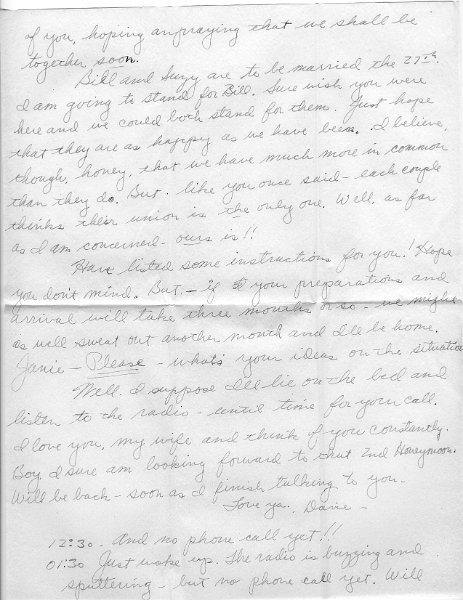 of you, hoping an praying that we shall be
together soon.
Bill and Suzy are to be married the 27th.
I am going to stand for Bill. Sure wish you were
here and we could both stand for them. Just hope
that they are as happy as we have been. I believe,
though, honey, that we have much more in common
than they do. But. like you once said - each couple
thinks their union is the only one. Well, as far
as I am concerned - ours is!!
Have listed some instructions for you! Hope
you don't mind. But, - if your preparations and
arrival will take three months or so - we might
as well sweat out another month and I'll be home.
Janie - Please - whats your ideas on the situation
Well. I suppose I'll lie on the bed and
listen to the radio - until time for your call.
I love you, my wife and think of you constantly.
Boy I sure am looking forward to that 2nd Honeymoon.
Will be back - soon as I finish talking to you.
Love ya, Dave -
12:30 - And no phone call yet!!
01:30 Just woke up. The radio is buzzing and
sputtering - but no phone call yet. Will